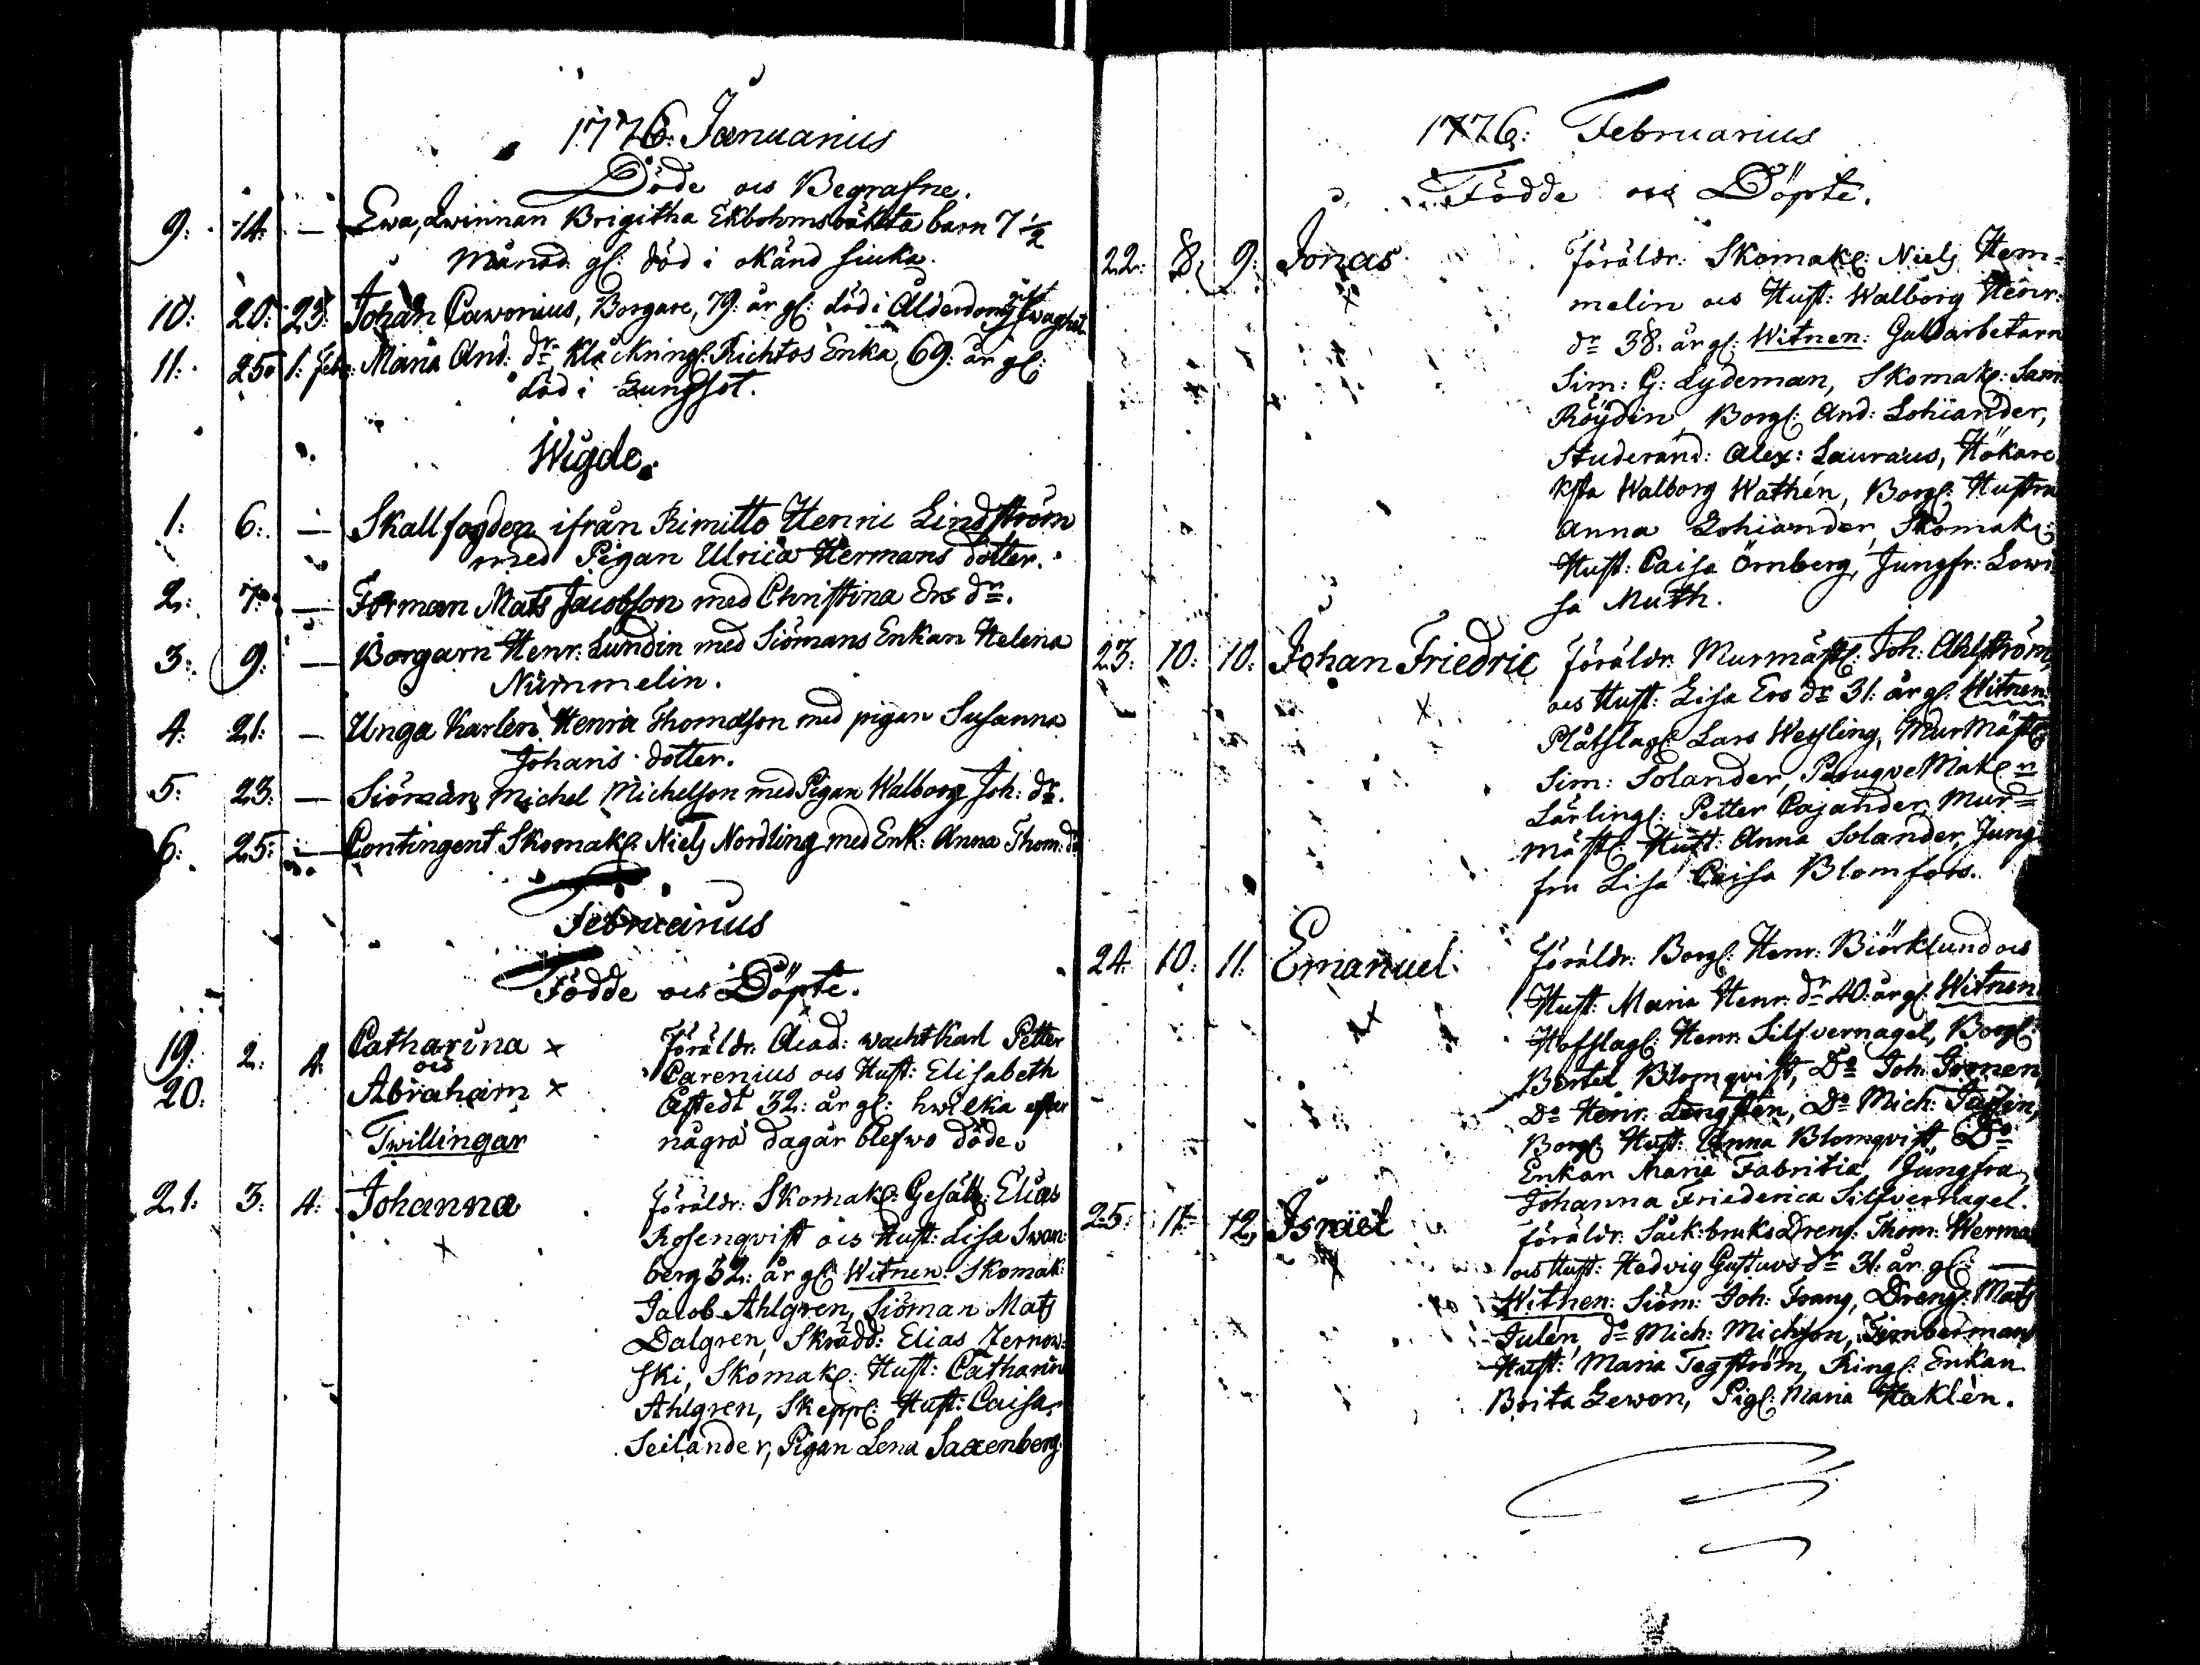 1776. Januarius
Döde ocs Begrafne.
9: 14: — Ewa, qwinnan Brigitha Ekbohms oäkta barn 7 ½
Månad. gl: död i okänd siuka.
10: 20: 23: Johan Cawonius, Borgare, 79: år gl: död i Ålderdoms swaghet
11: 25. 1. Febr: Maria And: dr Klåckringl: Richtos Enka, 69: år gl:
död i Lungsot.
Wigde.
1: 6: — Skallfogden ifrån Rimitto Henric Lindström
med Pigan Ulrica Hermans dotter.
2: 7: — Forman Mats Jacobsson med Christina Ers dr.
3: 9: — Borgarn Henr: Lundin med Siömans Enkan Helena
Nummelin.
4: 21: — Unga Karlen Henric Thomasson med pigan Susanna
Johans dotter.
5: 23: — Siöman Michel Michelsson med Pigan Walborg Joh: dr.
6: 25: — Contingent Skomak: Niels Nordling med Enk: Anna Thom: dr
Februarius
Födde ocs Döpte.
19: 2: 4: Catharina x Föräldr: Acad: wachtKarl Petter
ocs Carenius ocs Hust: Elisabeth
20. Abraham x 32: år gl: hwilka efter
Twillingar några dagar blefwo döde.
21: 3: 4: Johanna Föräldr: Skomak: Gesäll: Elias
x Rosenqvist ocs Hust: Lisa Swan:
berg 32: år gl: Witnen: Skomak:
Jacob Ahlgren, Siöman Mats
Dalgren, Skrädd: Elias Zernow:
ski, Skomak: Hust: Catharin
Ahlgren, Skepp: Hust: Caisa
Seilander, Pigan Lena Saxenberg.
1776: Februarius
Födde ocs Döpte.
22: 8: 9: Jonas Föräldr: Skomak: Niels Hem=
x melin ocs Hust: Walborg Henr:
dr 38: år gl: Witnen: Gullarbetarn
Sim: G: Lydeman, Skomak: Sam
Röydin, Borgl: And: Lohiander,
Studerand: Alex: Lauræus, Hökare
Walborg Wathén, Borgl: Hustru
Anna Lohiander, Skomak:
Hust: Caisa Örnberg, Jungfr: Lowi
sa Muth.
23: 10: 10: Johan Friedric Föräldr: Murmäst: Joh: Ahlström
x ocs Hust: Lisa Ers dr 31: år gl: Witnen
Plåtslag: Lars Weyling, MurMäst:
Sim: Solander, PeruqveMak: n
Lärlingl: Petter Cajander, Mur=
mäst: Hust: Anna Solander, Jung
fru Lisa Caisa Blomfors.
24. 10: 11: Emanuel. Föräldr: Borgl: Henr: Biörklund ocs
x Hust: Maria Henr: dr 40: år gl: Witnen
Hofslag: Henr: Silfvernagel, Borgl:
Bertel Blomqvist, Do Joh: Gronen,
Do Henr: Lengstén, Do Mich: Tallén,
Borgl: Hust: Anna Blomqvist, Do
Enkan Maria Fabritia, Jungfra
Johanna Friederica Silfvernagel.
25: 11: 12, Israel Föräldr: Säck:bruks Dreng: Thom: Werma
x ocs Hust: Hedvig Gustavs dr 31: år gl: —
Witnen: Siöm: Joh: Frang, Dreng: Mats
Julén, do Mich: Michsson, Timberman
Hust: Maria Tegström, Ringl: Enkan
Brita Lewon, Pigl: Maria Haklén.